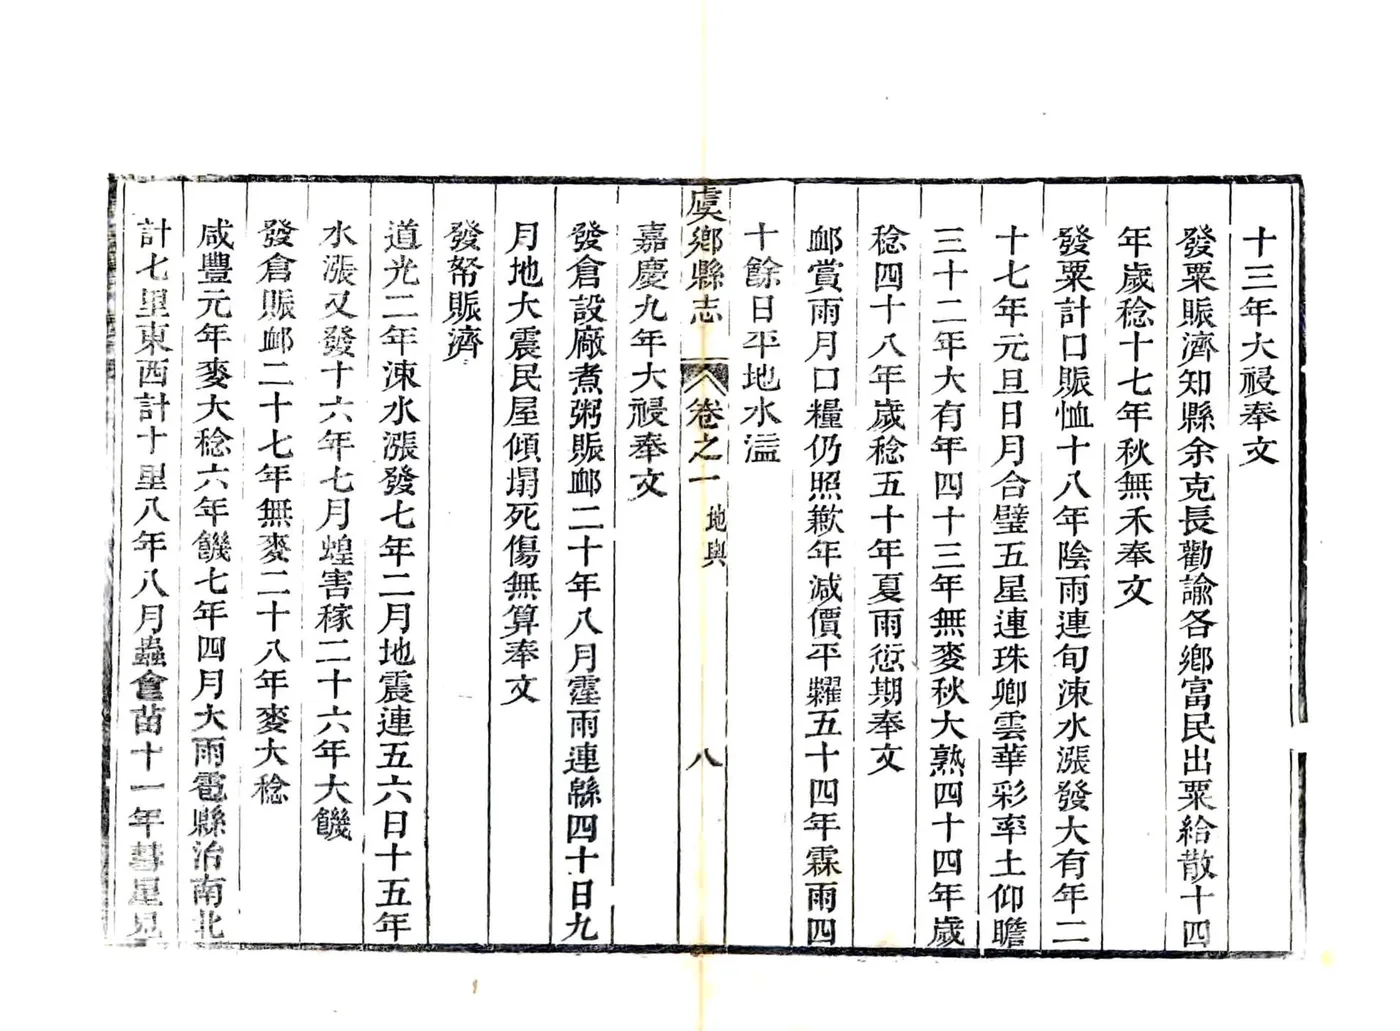 十三年大祲奉文
發粟賑濟知縣余克長勸諭各鄉富民出粟給散十四
年歲稔十七年秋無禾奉文
發粟計口賑恤十八年陰雨連旬涑水漲發大有年二
十七年元旦日月合璧五星連珠卿雲華彩率土仰瞻
三十二年大有年四十三年無麥秋大熟四十四年歲
稔四十八年歲稔五十年夏雨愆期奉文
卹賞兩月口糧仍照歉年減價平糶五十四年霖雨四
十餘日平地水溢
虞鄉縣志 卷之一 地輿 八
嘉慶九年大祲奉文
發倉設廠煮粥賑卹二十年八月霪雨連緜四十日九
月地大震民屋傾塌死傷無算奉文
發帑賑濟
道光二年涑水漲發七年二月地震連五六日十五年
水漲又發十六年七月蝗害稼二十六年大饑
發倉賑卹二十七年無麥二十八年麥大稔
咸豐元年麥大稔六年饑七年四月大雨雹縣治南北
計七里東西計十里八年八月蟲食苗十一年彗星見